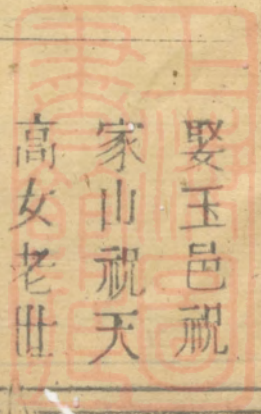 娶玉邑祝
家山祝天
高女老世